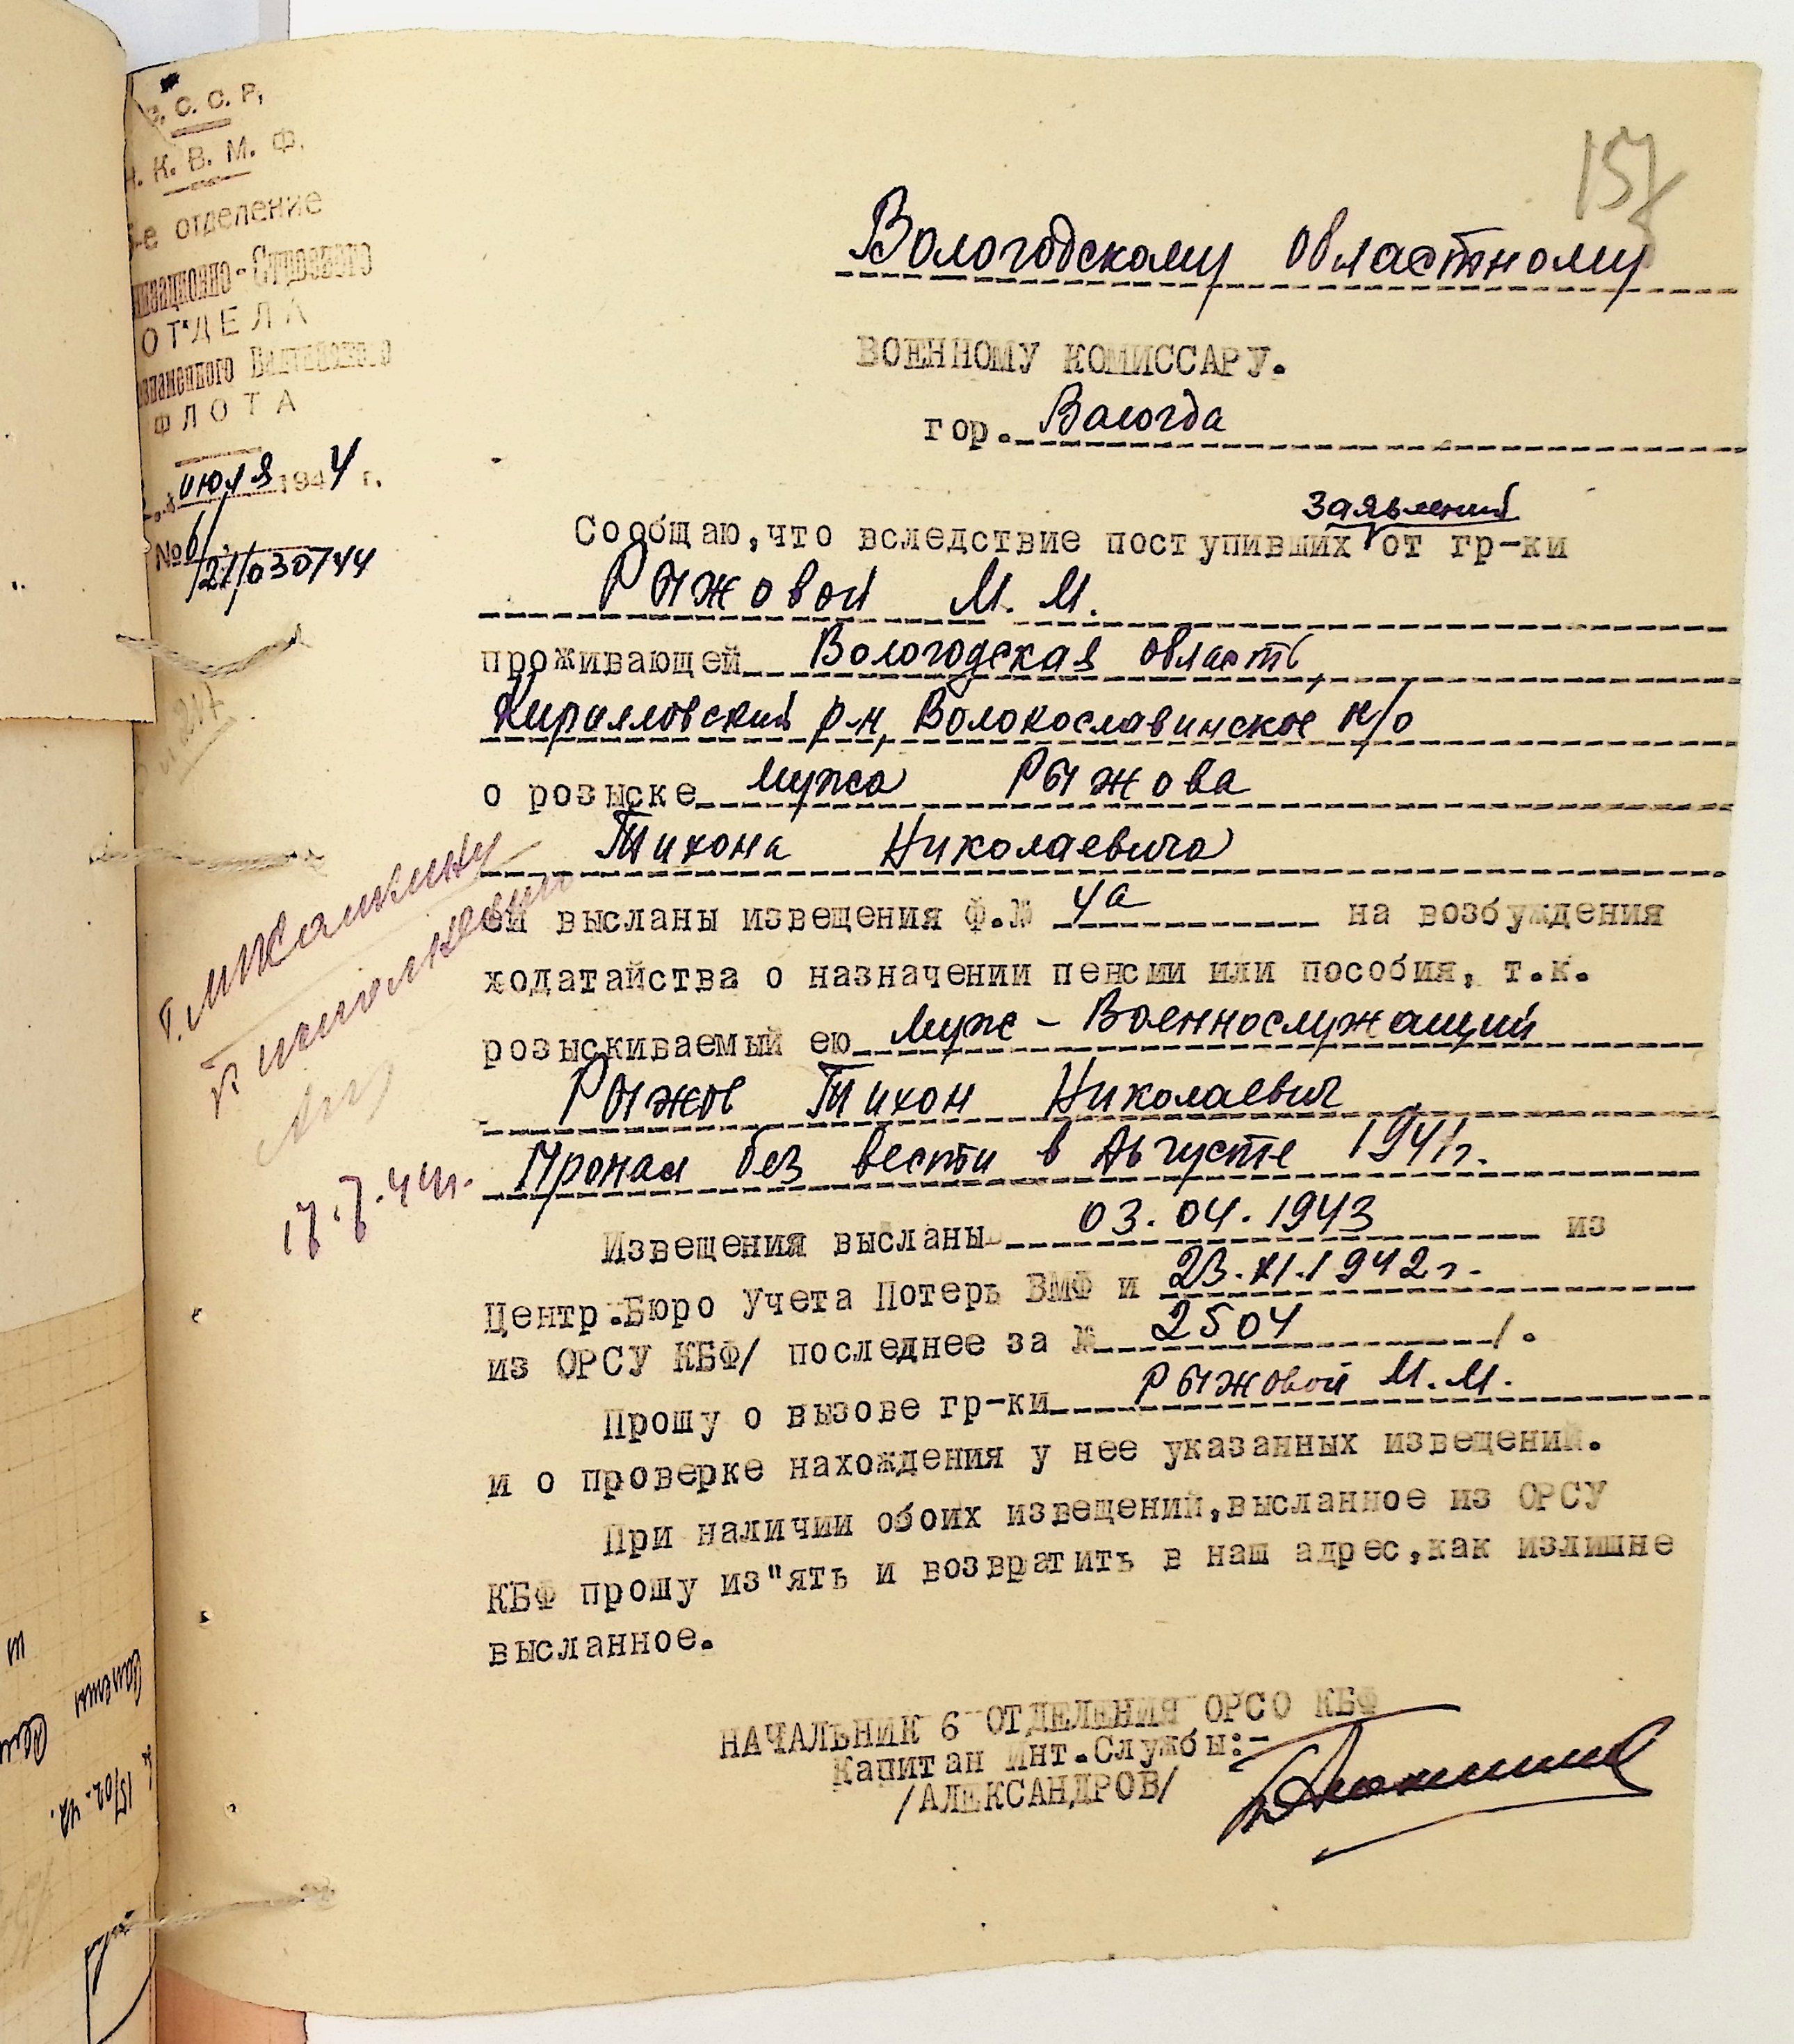 С. С. С. Р.
Н. К. В. М. Ф.
6-е отделение
ОТДЕЛА
Краснознаменного Балтийского
ФЛОТА
июля 1944 г.
№ 6/
/21/030744
157
Вологодскому областному
ВОЕННОМУ КОМИССАРУ.
гор. Вологда
заявлений
Сообщаю,что вследствие поступивших от гр-ки
Рыжовой М. М.
проживающей Вологодская область,
Кирилловский р-н, Волокославинское п/о
о розыске мужа Рыжова
Тихона Николаевича
ей высланы извещения Ф.№ 4а на возбуждения
ходатайства о назначении пенсии или пособия, т.к.
розыскиваемый ею муж - Военнослужащий
Рыжов Тихон Николаевич
Пропал без вести в Августе 1941г.
17.7.44г.
Извещения высланы 03.04.1943 из
Центр.Бюро Учета Потерь ВМФ и 23.XI.1942г.
из ОРСУ КБФ/ последнее за № 2504 /.
Прошу о вызове гр-ки Рыжовой М.М.
и о проверке нахождения у нее указанных извещений.
При наличии обоих извещений,высланное из ОРСУ
КБФ прошу из"ять и возвратить в наш адрес,как излишне
высланное.
НАЧАЛЬНИК 6 ОТДЕЛЕНИЯ ОРСО КБФ
Капитан Инт.Службы:-
/АЛЕКСАНДРОВ/